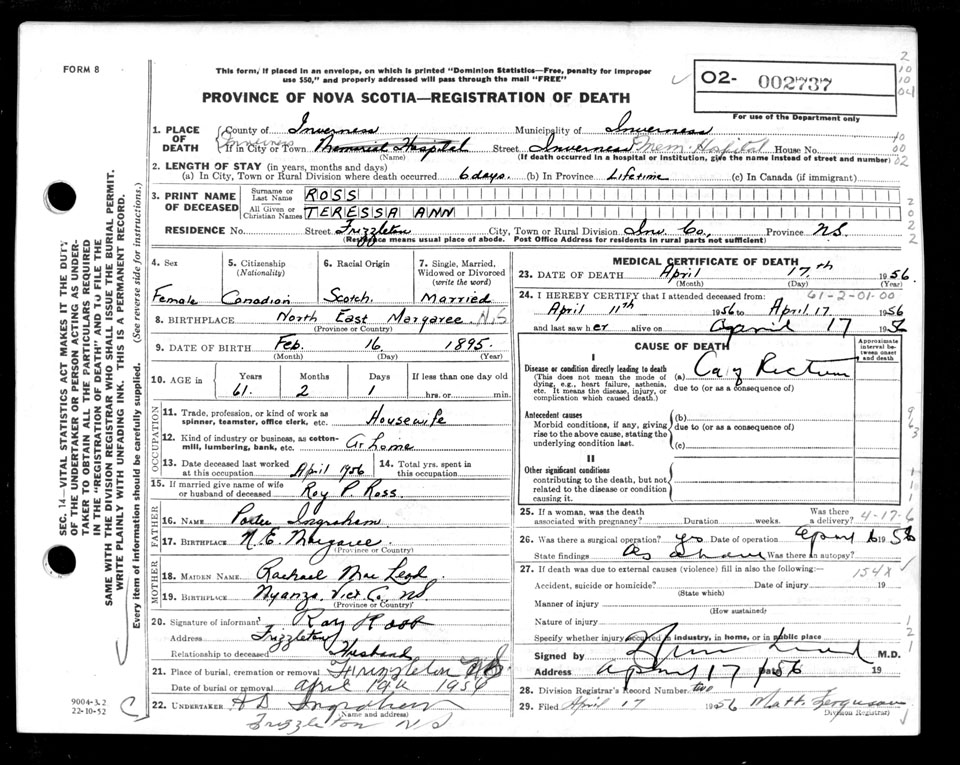 FORM 8
This form, if placed in an envelope, on which is printed "Dominion Statistics—Free, penalty for improper
use $50," and properly addressed will pass through the mail "FREE"
O2- 002737
For use of the Department only
PROVINCE OF NOVA SCOTIA—REGISTRATION OF DEATH
1. PLACE OF DEATH County of Inverness Municipality of Inverness
If in City or Town Memorial Hospital Street Inverness Mem. Hospital House No.
(Name) (If death occurred in a hospital or institution, give the name instead of street and number)
2. LENGTH OF STAY (in years, months and days)
(a) In City, Town or Rural Division where death occurred 6 days. (b) In Province Lifetime (c) In Canada (if immigrant)
3. PRINT NAME OF DECEASED
Surname or Last Name ROSS
All Given or Christian Names TERESSA ANN
RESIDENCE No. Street Frizzleton City, Town or Rural Division Inv. Co., Province N.S.
(Residence means usual place of abode. Post Office Address for residents in rural parts not sufficient)
4. Sex Female
5. Citizenship (Nationality) Canadian
6. Racial Origin Scotch.
7. Single, Married, Widowed or Divorced (write the word) Married
8. BIRTHPLACE North East Margaree. N.S
(Province or Country)
9. DATE OF BIRTH Feb. 16 1895.
(Month) (Day) (Year)
10. AGE in Years Months Days If less than one day old
61. 2 1 hrs. or min.
OCCUPATION
11. Trade, profession, or kind of work as spinner, teamster, office clerk, etc. Housewife
12. Kind of industry or business, as cotton-mill, lumbering, bank, etc. At home
13. Date deceased last worked at this occupation April 1956
14. Total yrs. spent in this occupation
15. If married give name of wife or husband of deceased Roy P. Ross.
FATHER
16. NAME Porter Ingraham
17. BIRTHPLACE N. E. Margaree.
(Province or Country)
MOTHER
18. MAIDEN NAME Rachael Mac Leod
19. BIRTHPLACE Nyanza, Vict Co, NS
(Province or Country)
20. Signature of informant Roy P Ross
Address Frizzleton
Relationship to deceased Husband
21. Place of burial, cremation or removal Frizzleton NS
Date of burial or removal April 19th 1956
22. UNDERTAKER Ingraham
(Name and address)
Frizzleton NS
MEDICAL CERTIFICATE OF DEATH
23. DATE OF DEATH April 17th 1956
(Month) (Day) (Year)
24. I HEREBY CERTIFY that I attended deceased from: 61-2-01-00
April 11th 1956 to April 17 1956
and last saw her alive on April 17 1956
CAUSE OF DEATH
Approximate interval between onset and death
I
Disease or condition directly leading to death
(This does not mean the mode of dying, e.g., heart failure, asthenia, etc. It means the disease, injury, or complication which caused death.)
(a) Ca of Rectum
due to (or as a consequence of)
Antecedent causes
Morbid conditions, if any, giving rise to the above cause, stating the underlying condition last.
(b)
due to (or as a consequence of)
(c)
II
Other significant conditions
contributing to the death, but not related to the disease or condition causing it.
25. If a woman, was the death associated with pregnancy? Duration weeks. Was there a delivery? 4-17-6
26. Was there surgical operation? Yes Date of operation April 16 1956
State findings As above Was there an autopsy?
27. If death was due to external causes (violence) fill in also the following:— 154X
Accident, suicide or homicide? Date of injury 19
(State which)
Manner of injury
(How sustained)
Nature of injury
Specify whether injury occurred in industry, in home, or in public place
Signed by M.D.
Address April 17 Date 56 19
28. Division Registrar's Record Number two
29. Filed April 17 1956 Matt. Ferguson
(Division Registrar)
SEC. 14—VITAL STATISTICS ACT MAKES IT THE DUTY
OF THE UNDERTAKER OR PERSON ACTING AS UNDERTAKER TO OBTAIN ALL THE PARTICULARS REQUIRED
IN THE "REGISTRATION OF DEATH" AND TO FILE THE
SAME WITH THE DIVISION REGISTRAR WHO SHALL ISSUE THE BURIAL PERMIT.
WRITE PLAINLY WITH UNFADING INK. THIS IS A PERMANENT RECORD.
Every item of information should be carefully supplied. (See reverse side for instructions.)
9004-3.2
22-10-52